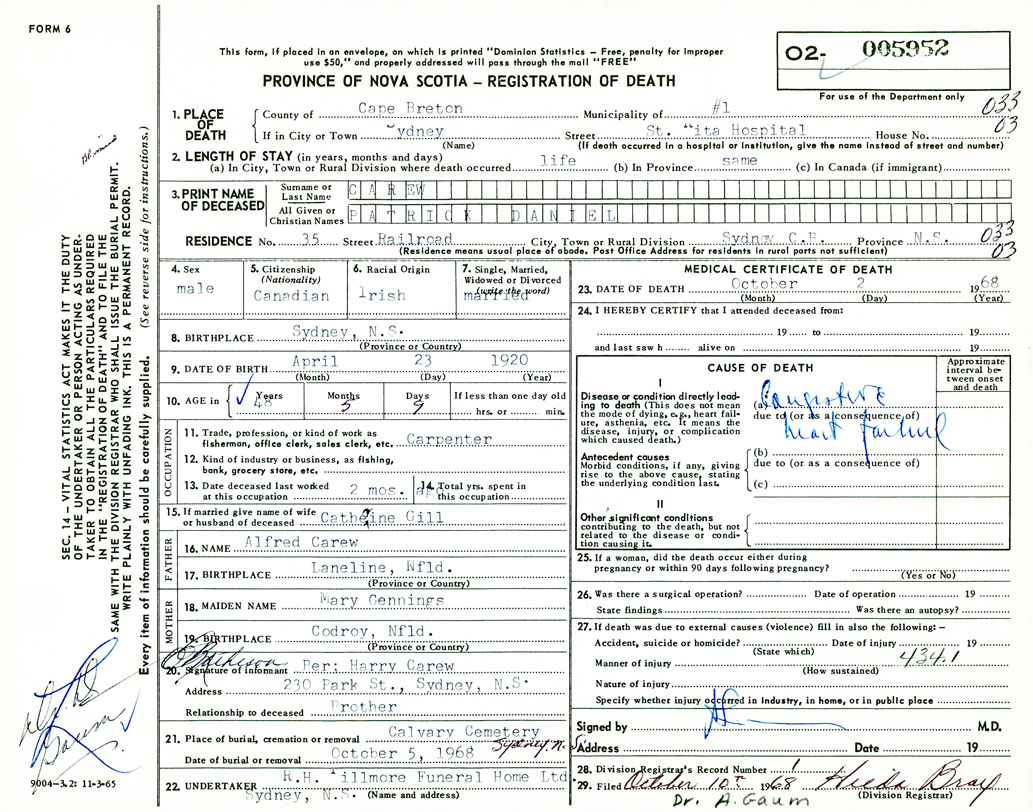 FORM 6
This form, if placed in an envelope, on which is printed "Dominion Statistics – Free, penalty for improper
use $50," and properly addressed will pass through the mail "FREE"
PROVINCE OF NOVA SCOTIA – REGISTRATION OF DEATH
O2- 005952
For use of the Department only
1. PLACE OF DEATH
County of Cape Breton Municipality of #1
033
03
If in City or Town ydney Street St. ita Hospital House No.
(Name) (If death occurred in a hospital or institution, give the name instead of street and number)
2. LENGTH OF STAY (in years, months and days)
(a) In City, Town or Rural Division where death occurred life (b) In Province same (c) In Canada (if immigrant)
3. PRINT NAME OF DECEASED
Surname or Last Name CAREW
All Given or Christian Names PATRICK DANIEL
RESIDENCE No. 35 Street Railroad City, Town or Rural Division Sydney C.B. Province N.S.
033
03
(Residence means usual place of abode. Post Office Address for residents in rural parts not sufficient)
4. Sex
male
5. Citizenship
(Nationality)
Canadian
6. Racial Origin
Irish
7. Single, Married,
Widowed or Divorced
(write the word)
married
8. BIRTHPLACE Sydney, N.S.
(Province or Country)
9. DATE OF BIRTH April 23 1920
(Month) (Day) (Year)
10. AGE in
Years Months Days If less than one day old
48 5 9 hrs. or min.
OCCUPATION
11. Trade, profession, or kind of work as
fisherman, office clerk, sales clerk, etc. Carpenter
12. Kind of industry or business, as fishing,
bank, grocery store, etc.
13. Date deceased last worked
at this occupation 2 mos. ago
14. Total yrs. spent in
this occupation
15. If married give name of wife
or husband of deceased Catherine Gill
FATHER
16. NAME Alfred Carew
17. BIRTHPLACE Laneline, Nfld.
(Province or Country)
MOTHER
18. MAIDEN NAME Mary Gennings
19. BIRTHPLACE Codroy, Nfld.
(Province or Country)
20. Signature of informant Per: Harry Carew
Address 230 Park St., Sydney, N.S.
Relationship to deceased Brother
21. Place of burial, cremation or removal Calvary Cemetery
Sydney N.S.
Date of burial or removal October 5, 1968
22. UNDERTAKER R.H. illmore Funeral Home Ltd.
Sydney, N.S. (Name and address)
MEDICAL CERTIFICATE OF DEATH
23. DATE OF DEATH October 2 1968
(Month) (Day) (Year)
24. I HEREBY CERTIFY that I attended deceased from:
19 to 19
and last saw h alive on 19
CAUSE OF DEATH
Approximate
interval be-
tween onset
and death
I
Disease or condition directly lead-
ing to death (This does not mean
the mode of dying, e.g., heart fail-
ure, asthenia, etc. It means the
disease, injury, or complication
which caused death.)
(a) Congestive
due to (or as a consequence of)
heart failure
Antecedent causes
Morbid conditions, if any, giving
rise to the above cause, stating
the underlying condition last.
(b)
due to (or as a consequence of)
(c)
II
Other significant conditions
contributing to the death, but not
related to the disease or condi-
tion causing it.
25. If a woman, did the death occur either during
pregnancy or within 90 days following pregnancy?
(Yes or No)
26. Was there a surgical operation? Date of operation 19
State findings Was there an autopsy?
27. If death was due to external causes (violence) fill in also the following: –
Accident, suicide or homicide? Date of injury 19
(State which)
434.1
Manner of injury
(How sustained)
Nature of injury
Specify whether injury occurred in industry, in home, or in public place
Signed by M.D.
Address Date 19
28. Division Registrar's Record Number 1
29. Filed October 10th 1968 Hieda Bray
(Division Registrar)
Dr. A. Gaum
SEC. 14 – VITAL STATISTICS ACT MAKES IT THE DUTY
OF THE UNDERTAKER OR PERSON ACTING AS UNDER-
TAKER TO OBTAIN ALL THE PARTICULARS REQUIRED
IN THE "REGISTRATION OF DEATH" AND TO FILE THE
SAME WITH THE DIVISION REGISTRAR WHO SHALL ISSUE THE BURIAL PERMIT.
WRITE PLAINLY WITH UNFADING INK. THIS IS A PERMANENT RECORD.
Every item of information should be carefully supplied. (See reverse side for instructions.)
Gaum
9004-3.2: 11-3-65